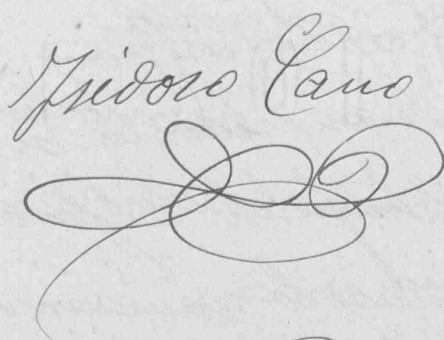 Isidoro Cano